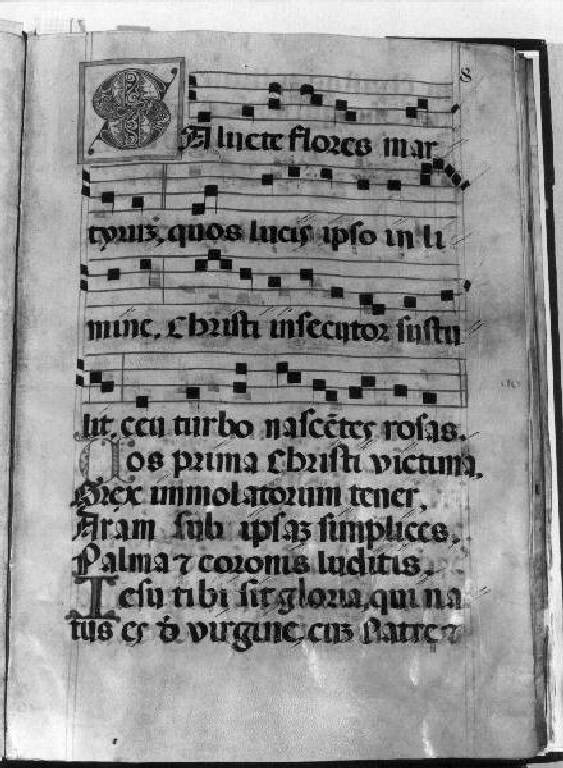 8
SAlvete flores mar
tyruʒ, quos lucis ipso in li
mine, Christi insecutor sustu
lit, ceu turbo nascētes rosas.
Uos prima Christi victima,
Grex immolatorum tener,
Aram sub ipsaʒ simplices,
Palma ⁊ coronis luditis.
Iesu tibi sit gloria, qui na
tus es d̄ virgine, cuʒ Patre ⁊